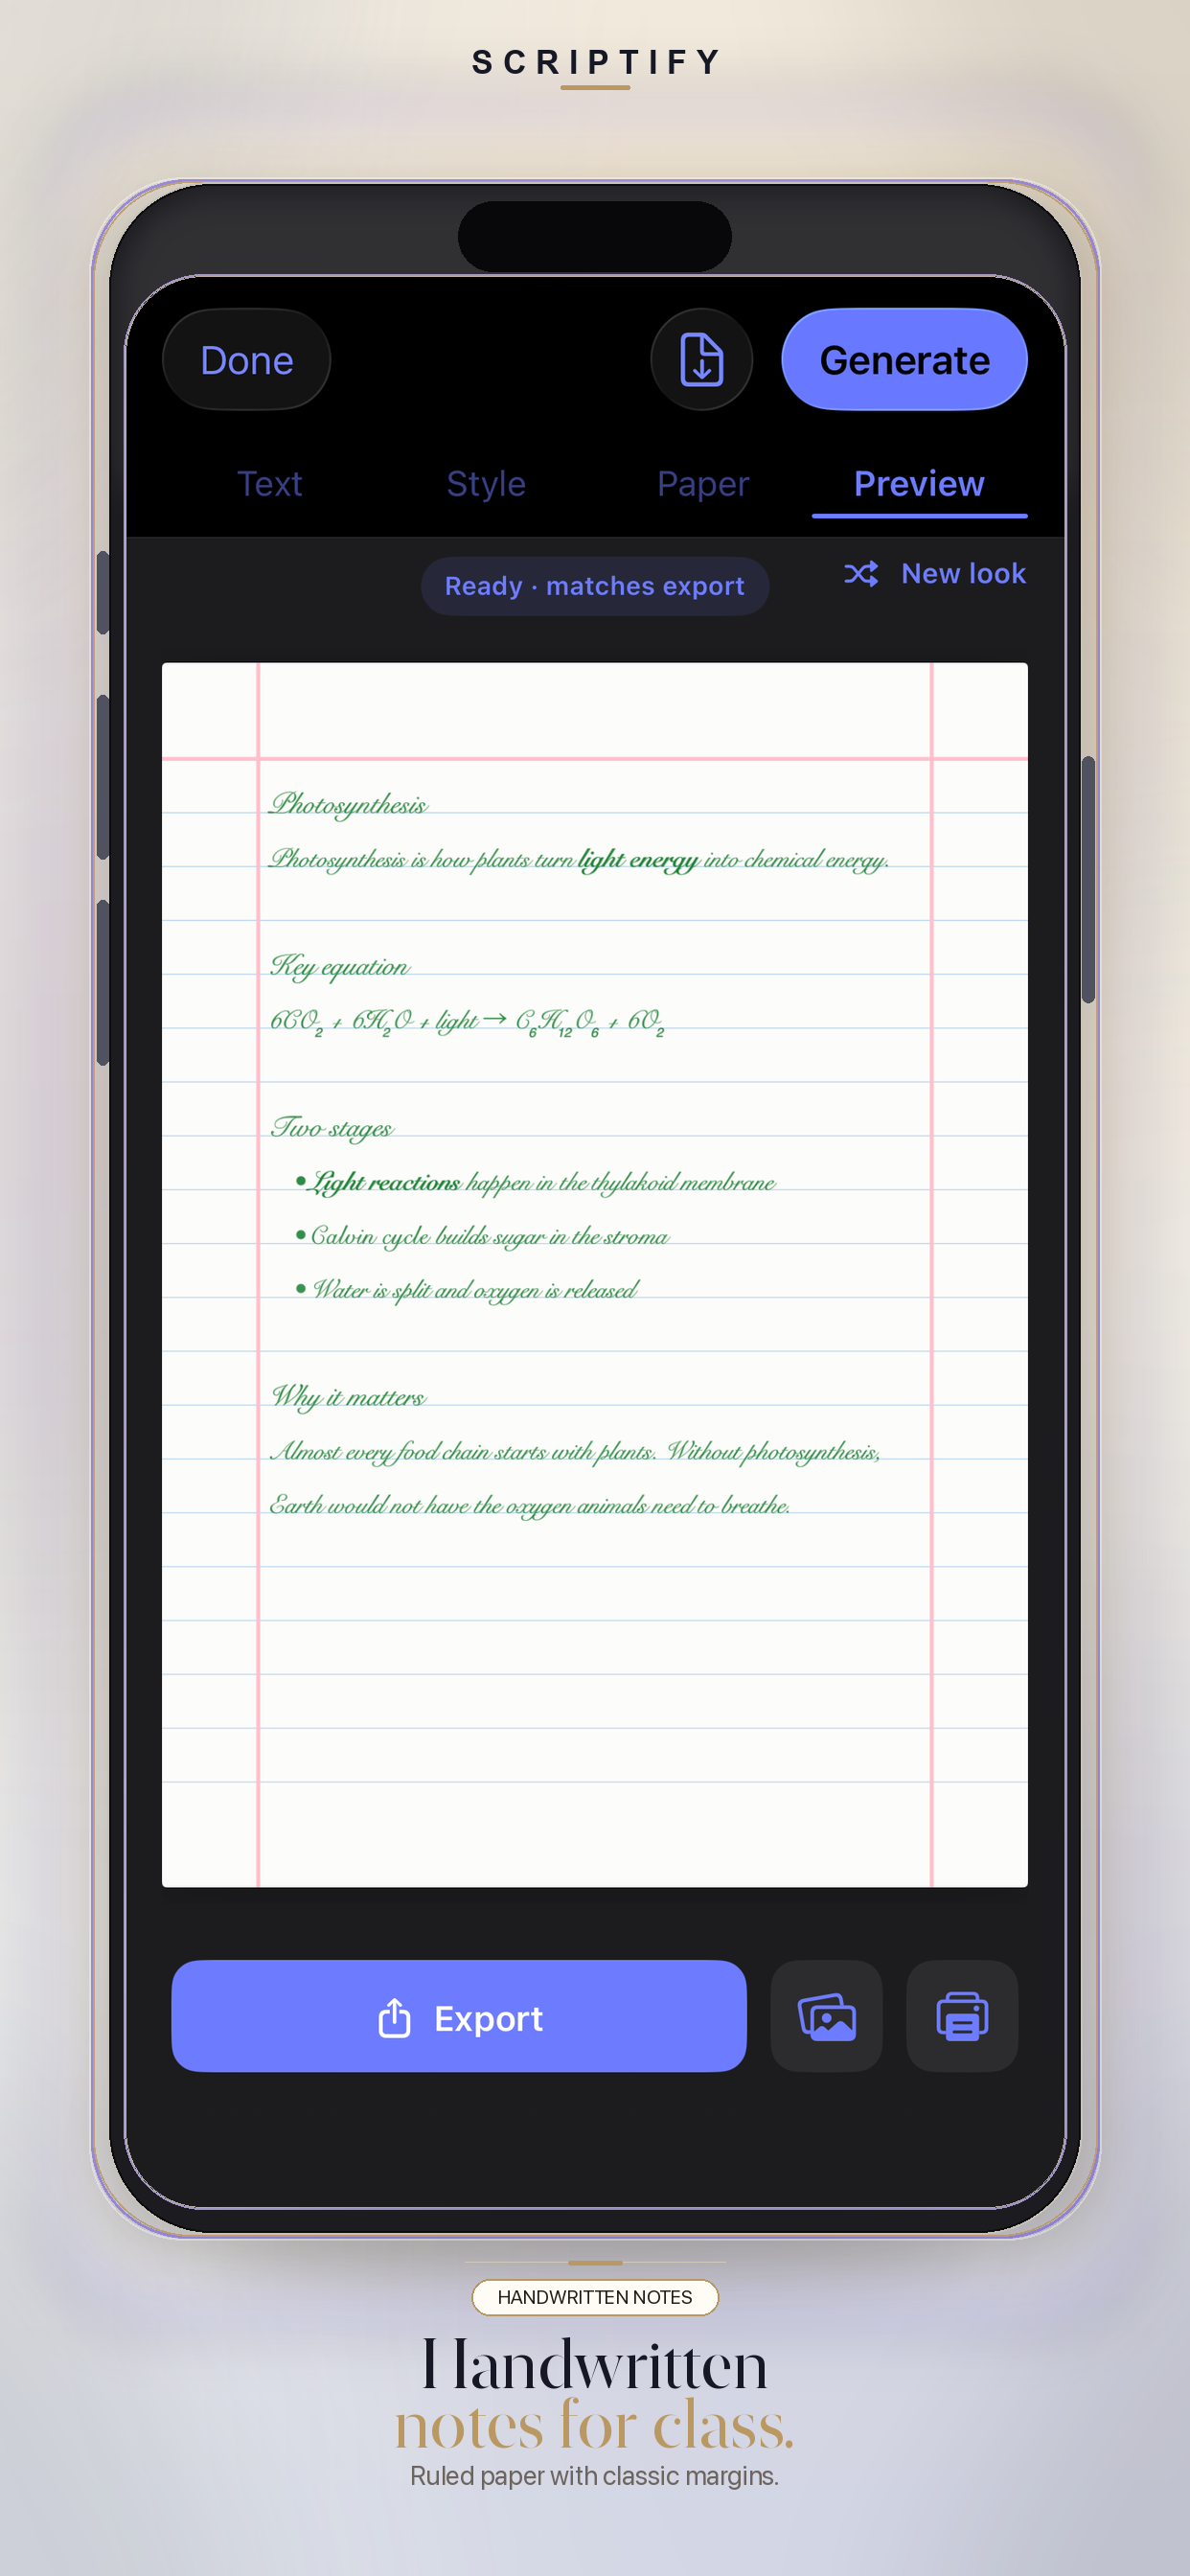 SCRIPTIFY
Done
Generate
Text Style Paper Preview
Ready · matches export
New look
Photosynthesis
Photosynthesis is how plants turn light energy into chemical energy.
Key equation
6CO₂ + 6H₂O + light → C₆H₁₂O₆ + 6O₂
Two stages
• Light reactions happen in the thylakoid membrane
• Calvin cycle builds sugar in the stroma
• Water is split and oxygen is released
Why it matters
Almost every food chain starts with plants. Without photosynthesis,
Earth would not have the oxygen animals need to breathe.
Export
HANDWRITTEN NOTES
Handwritten
notes for class.
Ruled paper with classic margins.